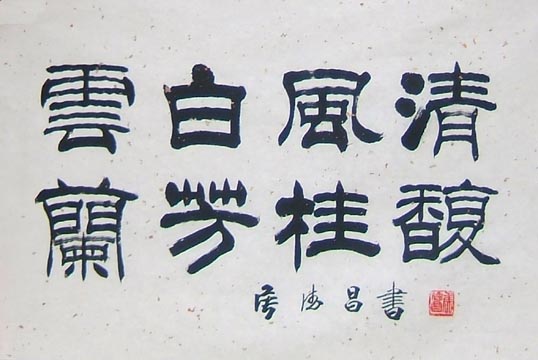 清風白雲
馥桂芳蘭
昌書